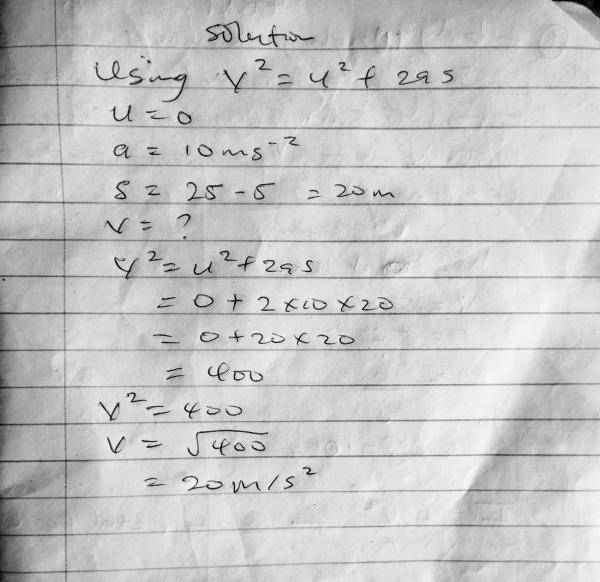 Solution
Using v² = u² + 2as
u = 0
a = 10ms⁻²
S = 25 - 5 = 20m
v = ?
v² = u² + 2as
= 0 + 2 × 10 × 20
= 0 + 20 × 20
= 400
v² = 400
v = √400
= 20m/s²